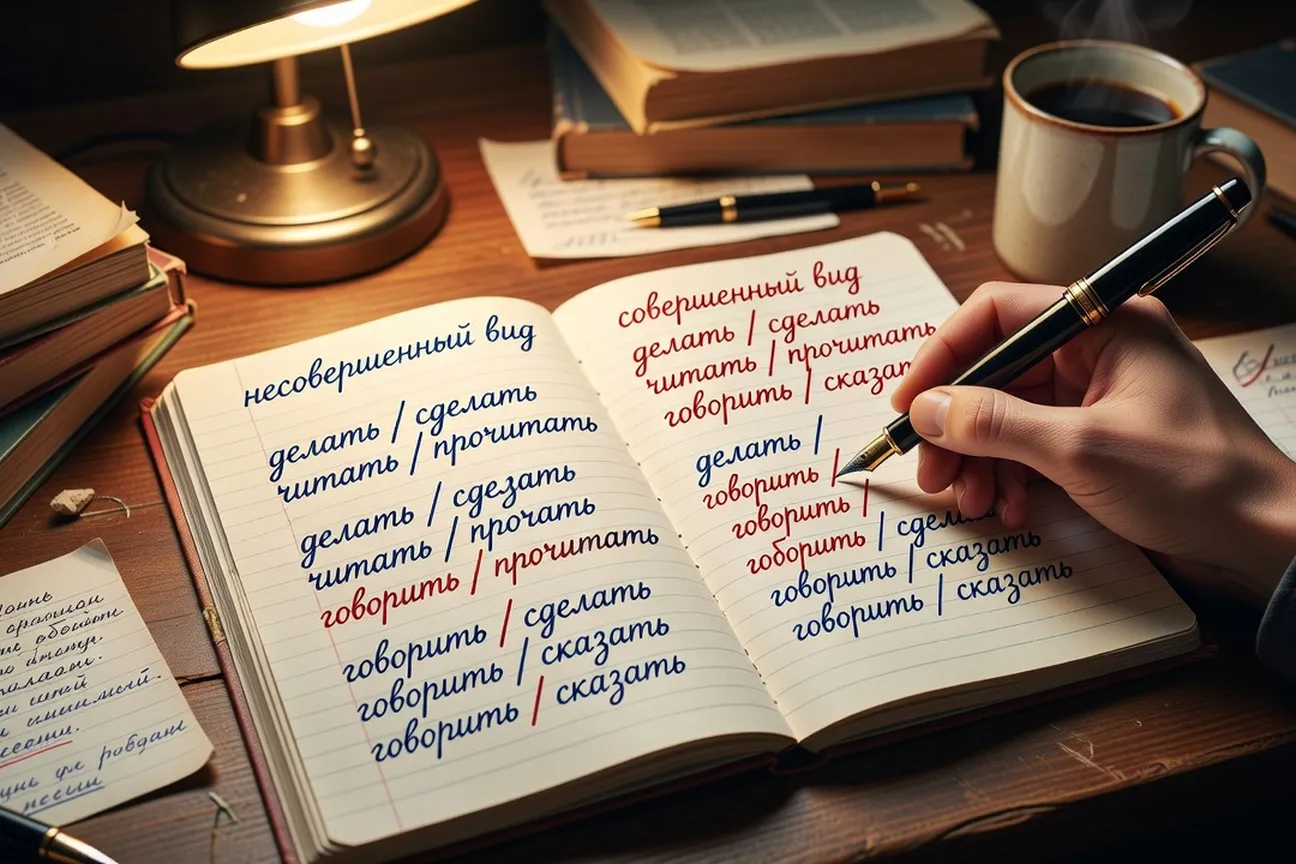 несовершенный вид
делать / сделать
читать / прочитать
делать / сдезать
читать / прочать
говорить / прочитать
говорить / сделать
говорить / сказать
говорить / сказать
совершенный вид
делать / сделать
читать / прочитать
говорить /
делать /
говорить /
говорить /
гоборить /
говорить / сказать
говорить / сказать